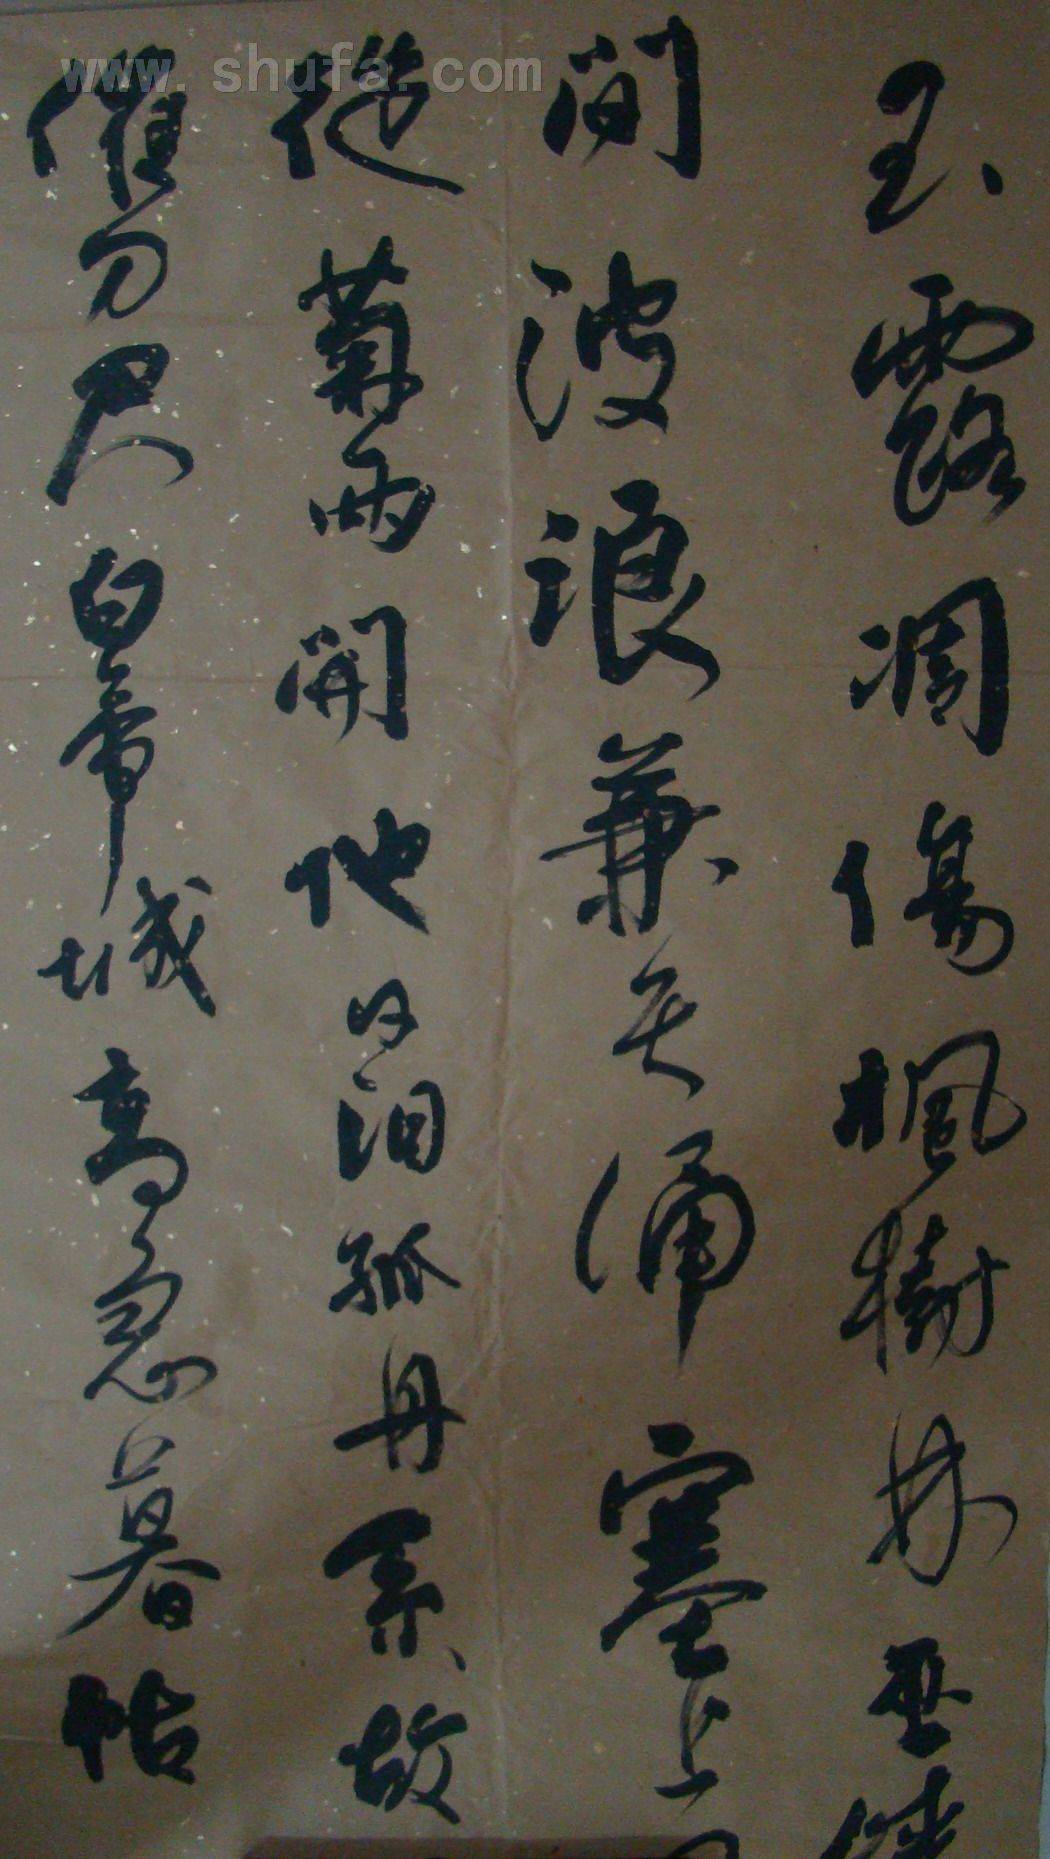 www.shufa.com
玉露凋傷楓樹林巫
間波浪兼天涌塞上
叢菊兩開他日泪孤舟系故
催刀尺白帝城高急暮帖